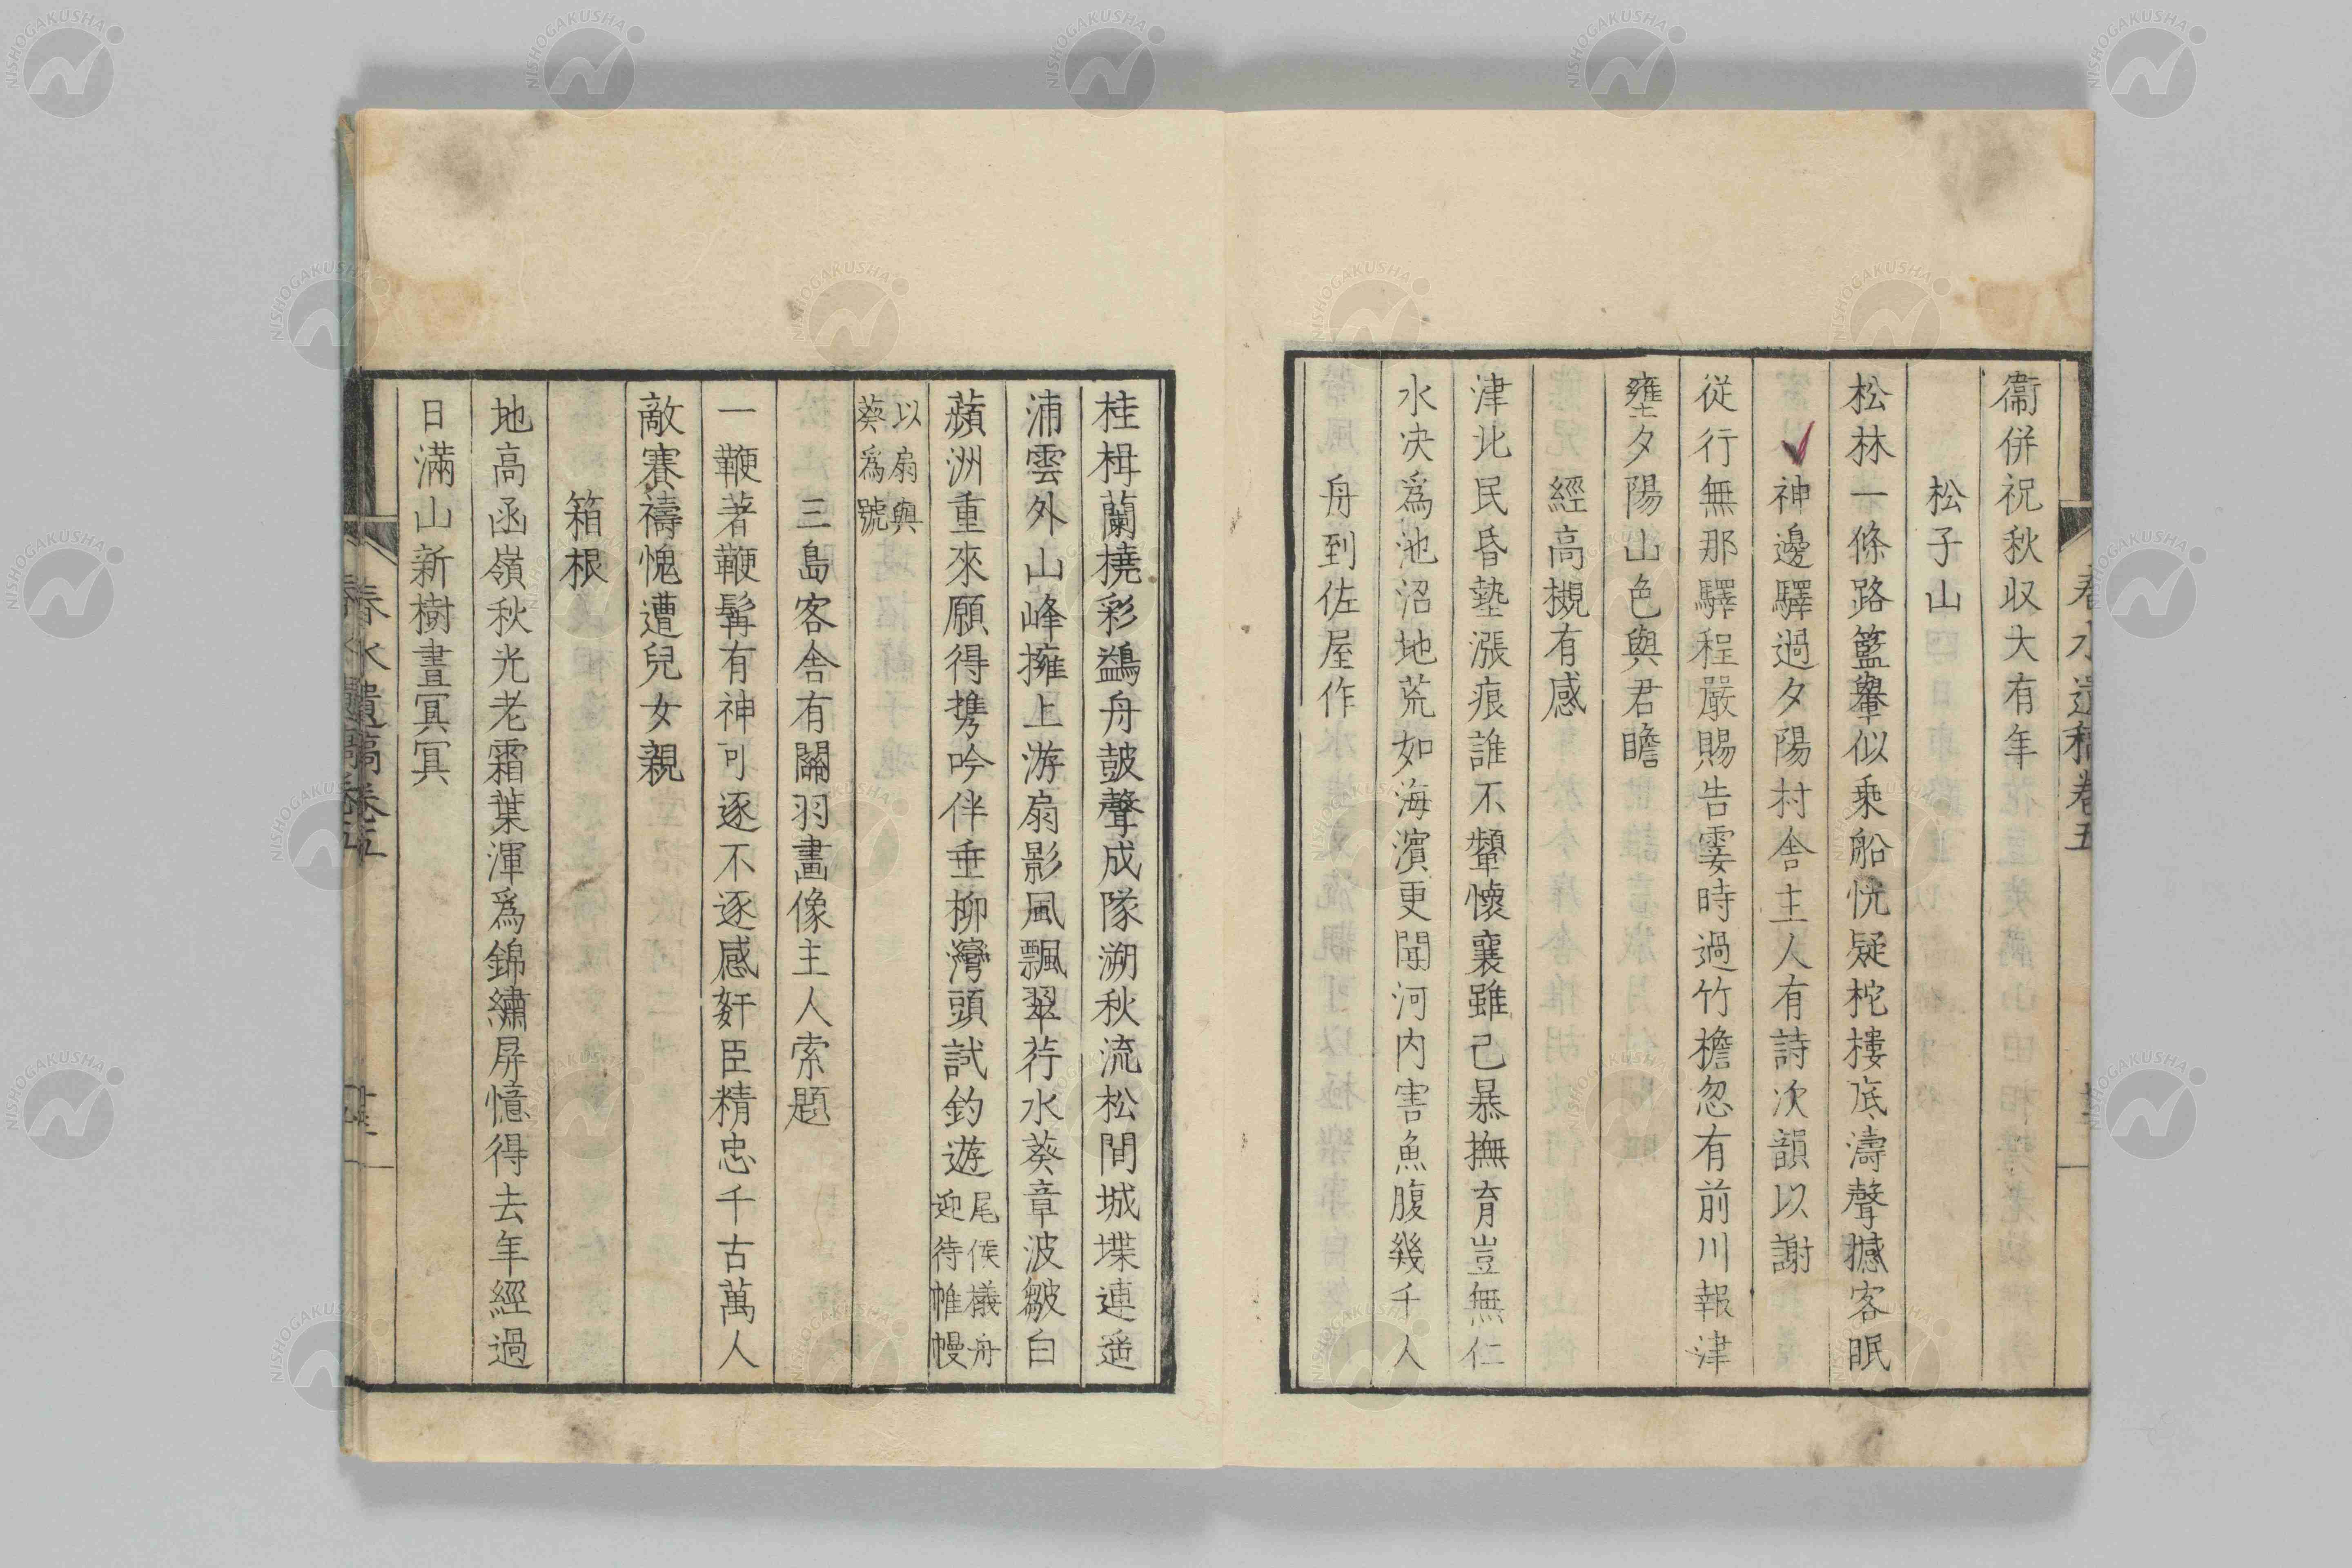 衞併祝秋収大有年
松子山
松林一條路籃轝似乘船恍疑柁樓底濤聲撼客眠
神邊驛過夕陽村舍主人有詩次韻以謝
従行無那驛程嚴賜告霎時過竹檐忽有前川報津
壅夕陽山色與君瞻
經高槻有感
津北民昏墊漲痕誰不顰懷襄雖己暴撫育豈無仁
水决爲池沼地荒如海濱更聞河内害魚腹幾千人
舟到佐屋作
春水遺稿卷五
桂楫蘭橈彩鷁舟皷聲成隊溯秋流松間城堞連遥
浦雲外山峰擁上游扇影風飄翠荇水葵章波皺白
蘋洲重來願得携吟伴垂柳灣頭試釣遊 尾侯艤舟迎待帷幔
以扇與葵爲號
三島客舍有關羽畫像主人索題
一鞭著鞭髯有神可逐不逐感奸臣精忠千古萬人
敵賽禱愧遭兒女親
箱根
地高函嶺秋光老霜葉渾爲錦繡屏憶得去年經過
日滿山新樹晝冥冥
春水遺稿卷五
NISHOGAKUSHA